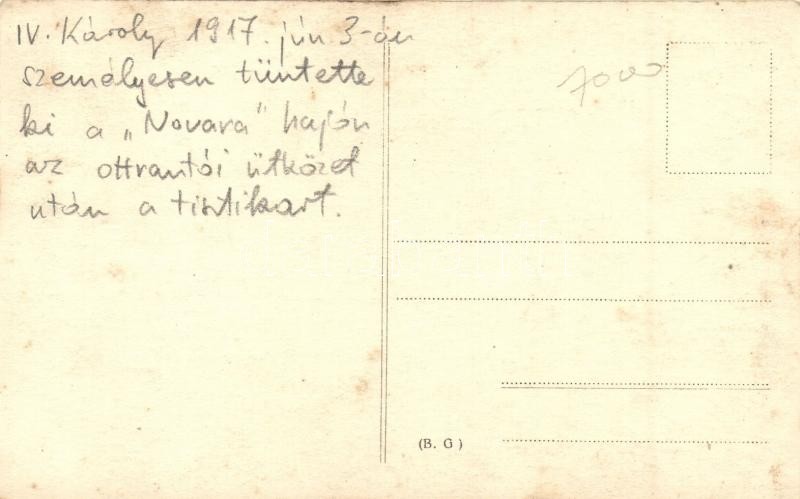 IV. Károly 1917. jún 3-án
személyesen tüntette
ki a „Novara" hajón
az ottrantói ütközet
után a tisztikart.
7000
(B. G)